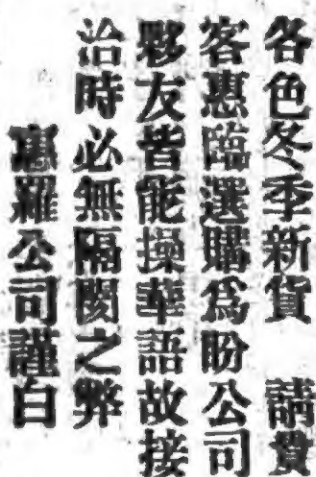 各色冬季新貨　請貴
客惠臨選購爲盼公司
夥友皆能操華語故接
洽時必無隔閡之弊
惠羅公司謹白